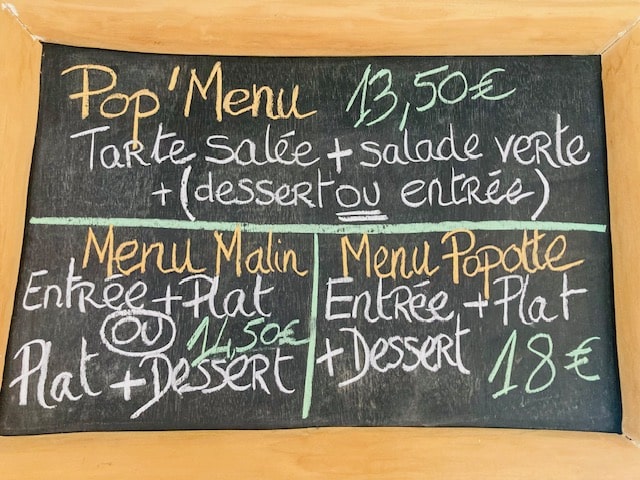 Pop'Menu 13,50€
Tarte salée + salade verte
+ (dessert ou entrée)
Menu Malin
Entrée + Plat
OU 14,50€
Plat + Dessert
Menu Popotte
Entrée + Plat
+ Dessert 18€